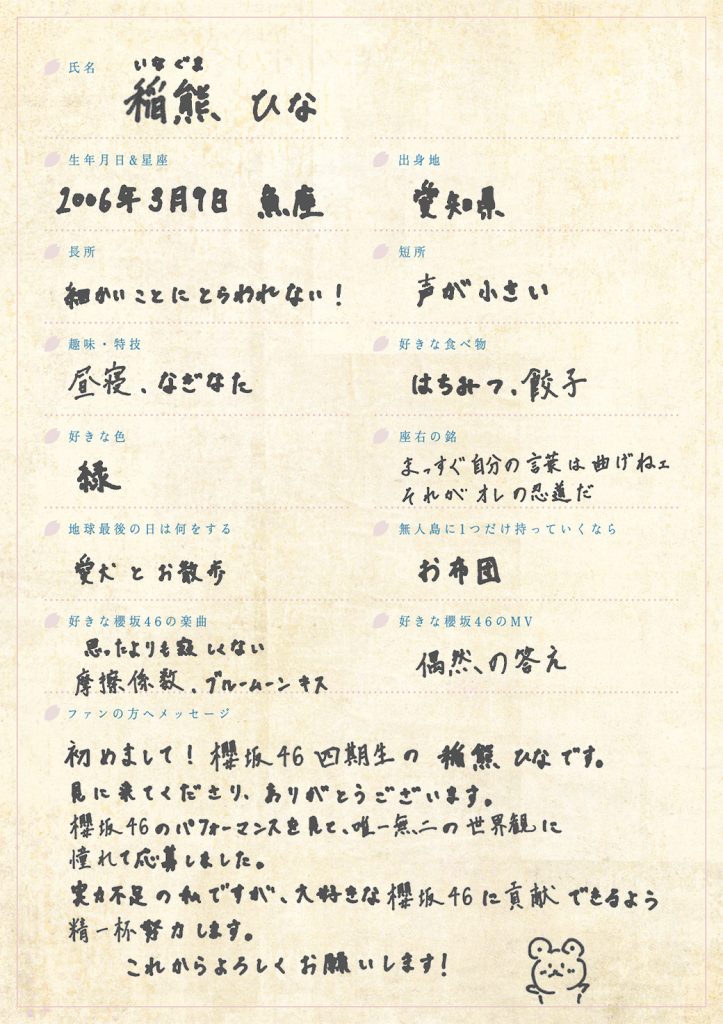 氏名
いなぐま
稲熊 ひな
生年月日&星座
2006年3月9日 魚座
出身地
愛知県
長所
細かいことにとらわれない!
短所
声が小さい
趣味・特技
昼寝、なぎなた
好きな食べ物
はちみつ、餃子
好きな色
緑
座右の銘
まっすぐ自分の言葉は曲げねェ
それがオレの忍道だ
地球最後の日は何をする
愛犬とお散歩
無人島に1つだけ持っていくなら
お布団
好きな櫻坂46の楽曲
思ったよりも寂しくない
摩擦係数、ブルームーンキス
好きな櫻坂46のMV
偶然の答え
ファンの方へメッセージ
初めまして!櫻坂46四期生の 稲熊 ひなです。
見に来てくださり、ありがとうございます。
櫻坂46のパフォーマンスを見て、唯一無二の世界観に
憧れて応募しました。
実力不足の私ですが、大好きな櫻坂46に貢献できるよう
精一杯努力します。
これからよろしくお願いします!